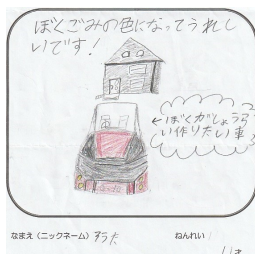 ぼくごみの色になってうれし
いです!
←ぼくがしょうら
い作りたい車
なまえ(ニックネーム)
ねんれい